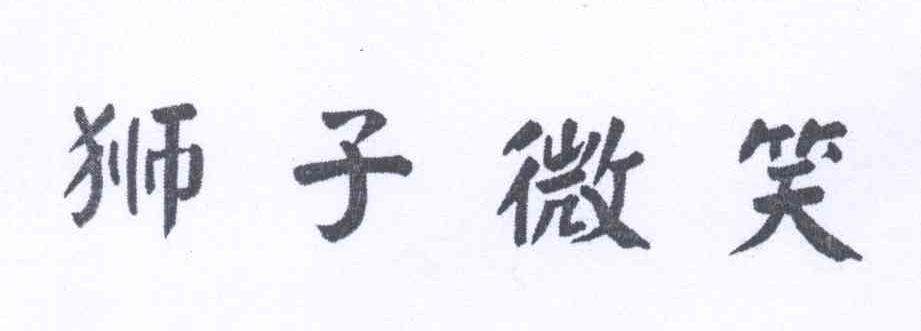 狮子微笑